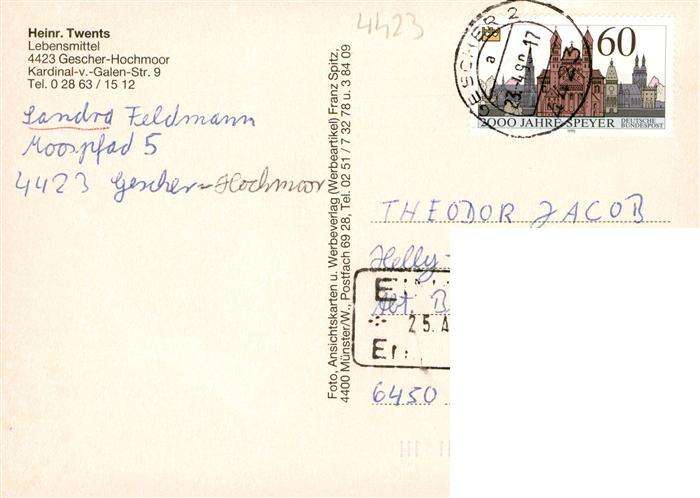 Heinr. Twents
Lebensmittel
4423 Gescher-Hochmoor
Kardinal-v.-Galen-Str. 9
Tel. 0 28 63 / 15 12
Sandra Feldmann
Moorpfad 5
4423 Gescher-Hochmoor
Foto, Ansichtskarten u. Werbeverlag (Werbeartikel) Franz Spitz,
4400 Münster/W., Postfach 69 28, Tel. 02 51 / 7 32 78 u. 3 84 09
4423
GESCHER 2
a
23.4.90-17
4423
60
2000 JAHRE SPEYER
DEUTSCHE
BUNDESPOST
THEODOR JACOB
Helly-
Abt. B
E
25. A
Er
6450